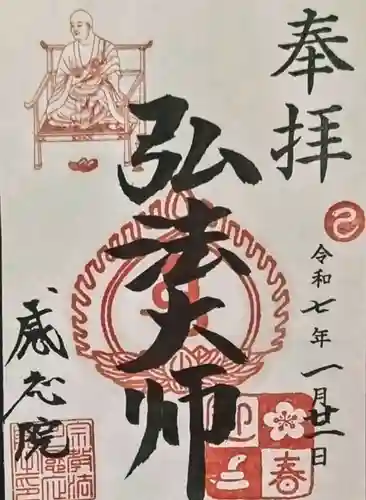 奉拝
令和七年一月廿一日
弘法大師
感応院
迎
春